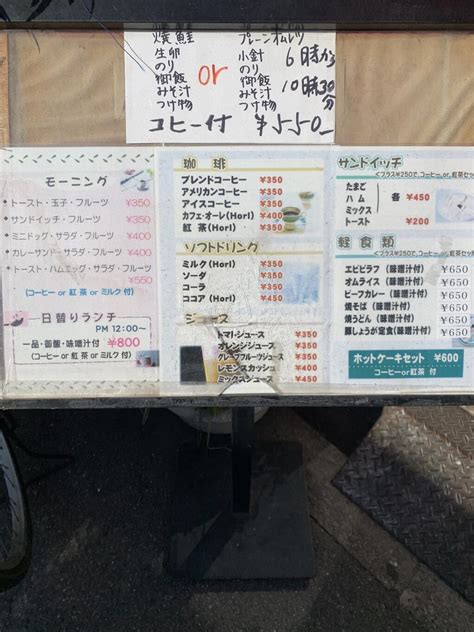 焼鮭
生卵
のり
御飯
みそ汁
つけ物
or
プレーンオムレツ
小針
のり
御飯
みそ汁
つけ物
6時から
10時30分
コヒー付 ¥550
モーニング
・トースト・玉子・フルーツ ¥350
・サンドイッチ・フルーツ ¥350
・ミニドッグ・サラダ・フルーツ ¥400
・カレーサンド・サラダ・フルーツ ¥400
・トースト・ハムエッグ・サラダ・フルーツ ¥550
(コーヒー or 紅茶 or ミルク 付)
日替りランチ
PM 12:00〜
一品・御飯・味噌汁付 ¥800
(コーヒー or 紅茶 or ミルク 付)
珈琲
ブレンドコーヒー ¥350
アメリカンコーヒー ¥350
アイスコーヒー ¥350
カフェ・オーレ(HorI) ¥400
紅茶(HorI) ¥350
ソフトドリング
ミルク(HorI) ¥350
ソーダ ¥350
コーラ ¥350
ココア(HorI) ¥450
ジュース
トマトジュース ¥350
オレンジジュース ¥350
グレープフルーツジュース ¥350
レモンスカッシュ ¥400
ミックスジュース ¥450
サンドイッチ
<プラス¥250で、コーヒー or 紅茶セット
たまご
ハム
ミックス
各 ¥450
トースト ¥200
軽食類
<プラス¥250で、コーヒー or 紅茶セット
エビピラフ(味噌汁付) ¥650
オムライス(味噌汁付) ¥650
ビーフカレー(味噌汁付) ¥650
焼そば(味噌汁付) ¥650
焼うどん(味噌汁付) ¥650
豚しょうが定食(味噌汁付) ¥650
ホットケーキセット ¥600
コーヒーor紅茶 付